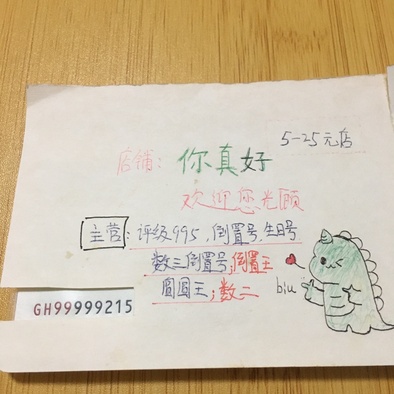 5-25元店
店铺: 你真好
欢迎您光顾
主营:评级995,倒置号,生日号
数三倒置号;倒置王
圆圆王;数二
biu
GH99999215